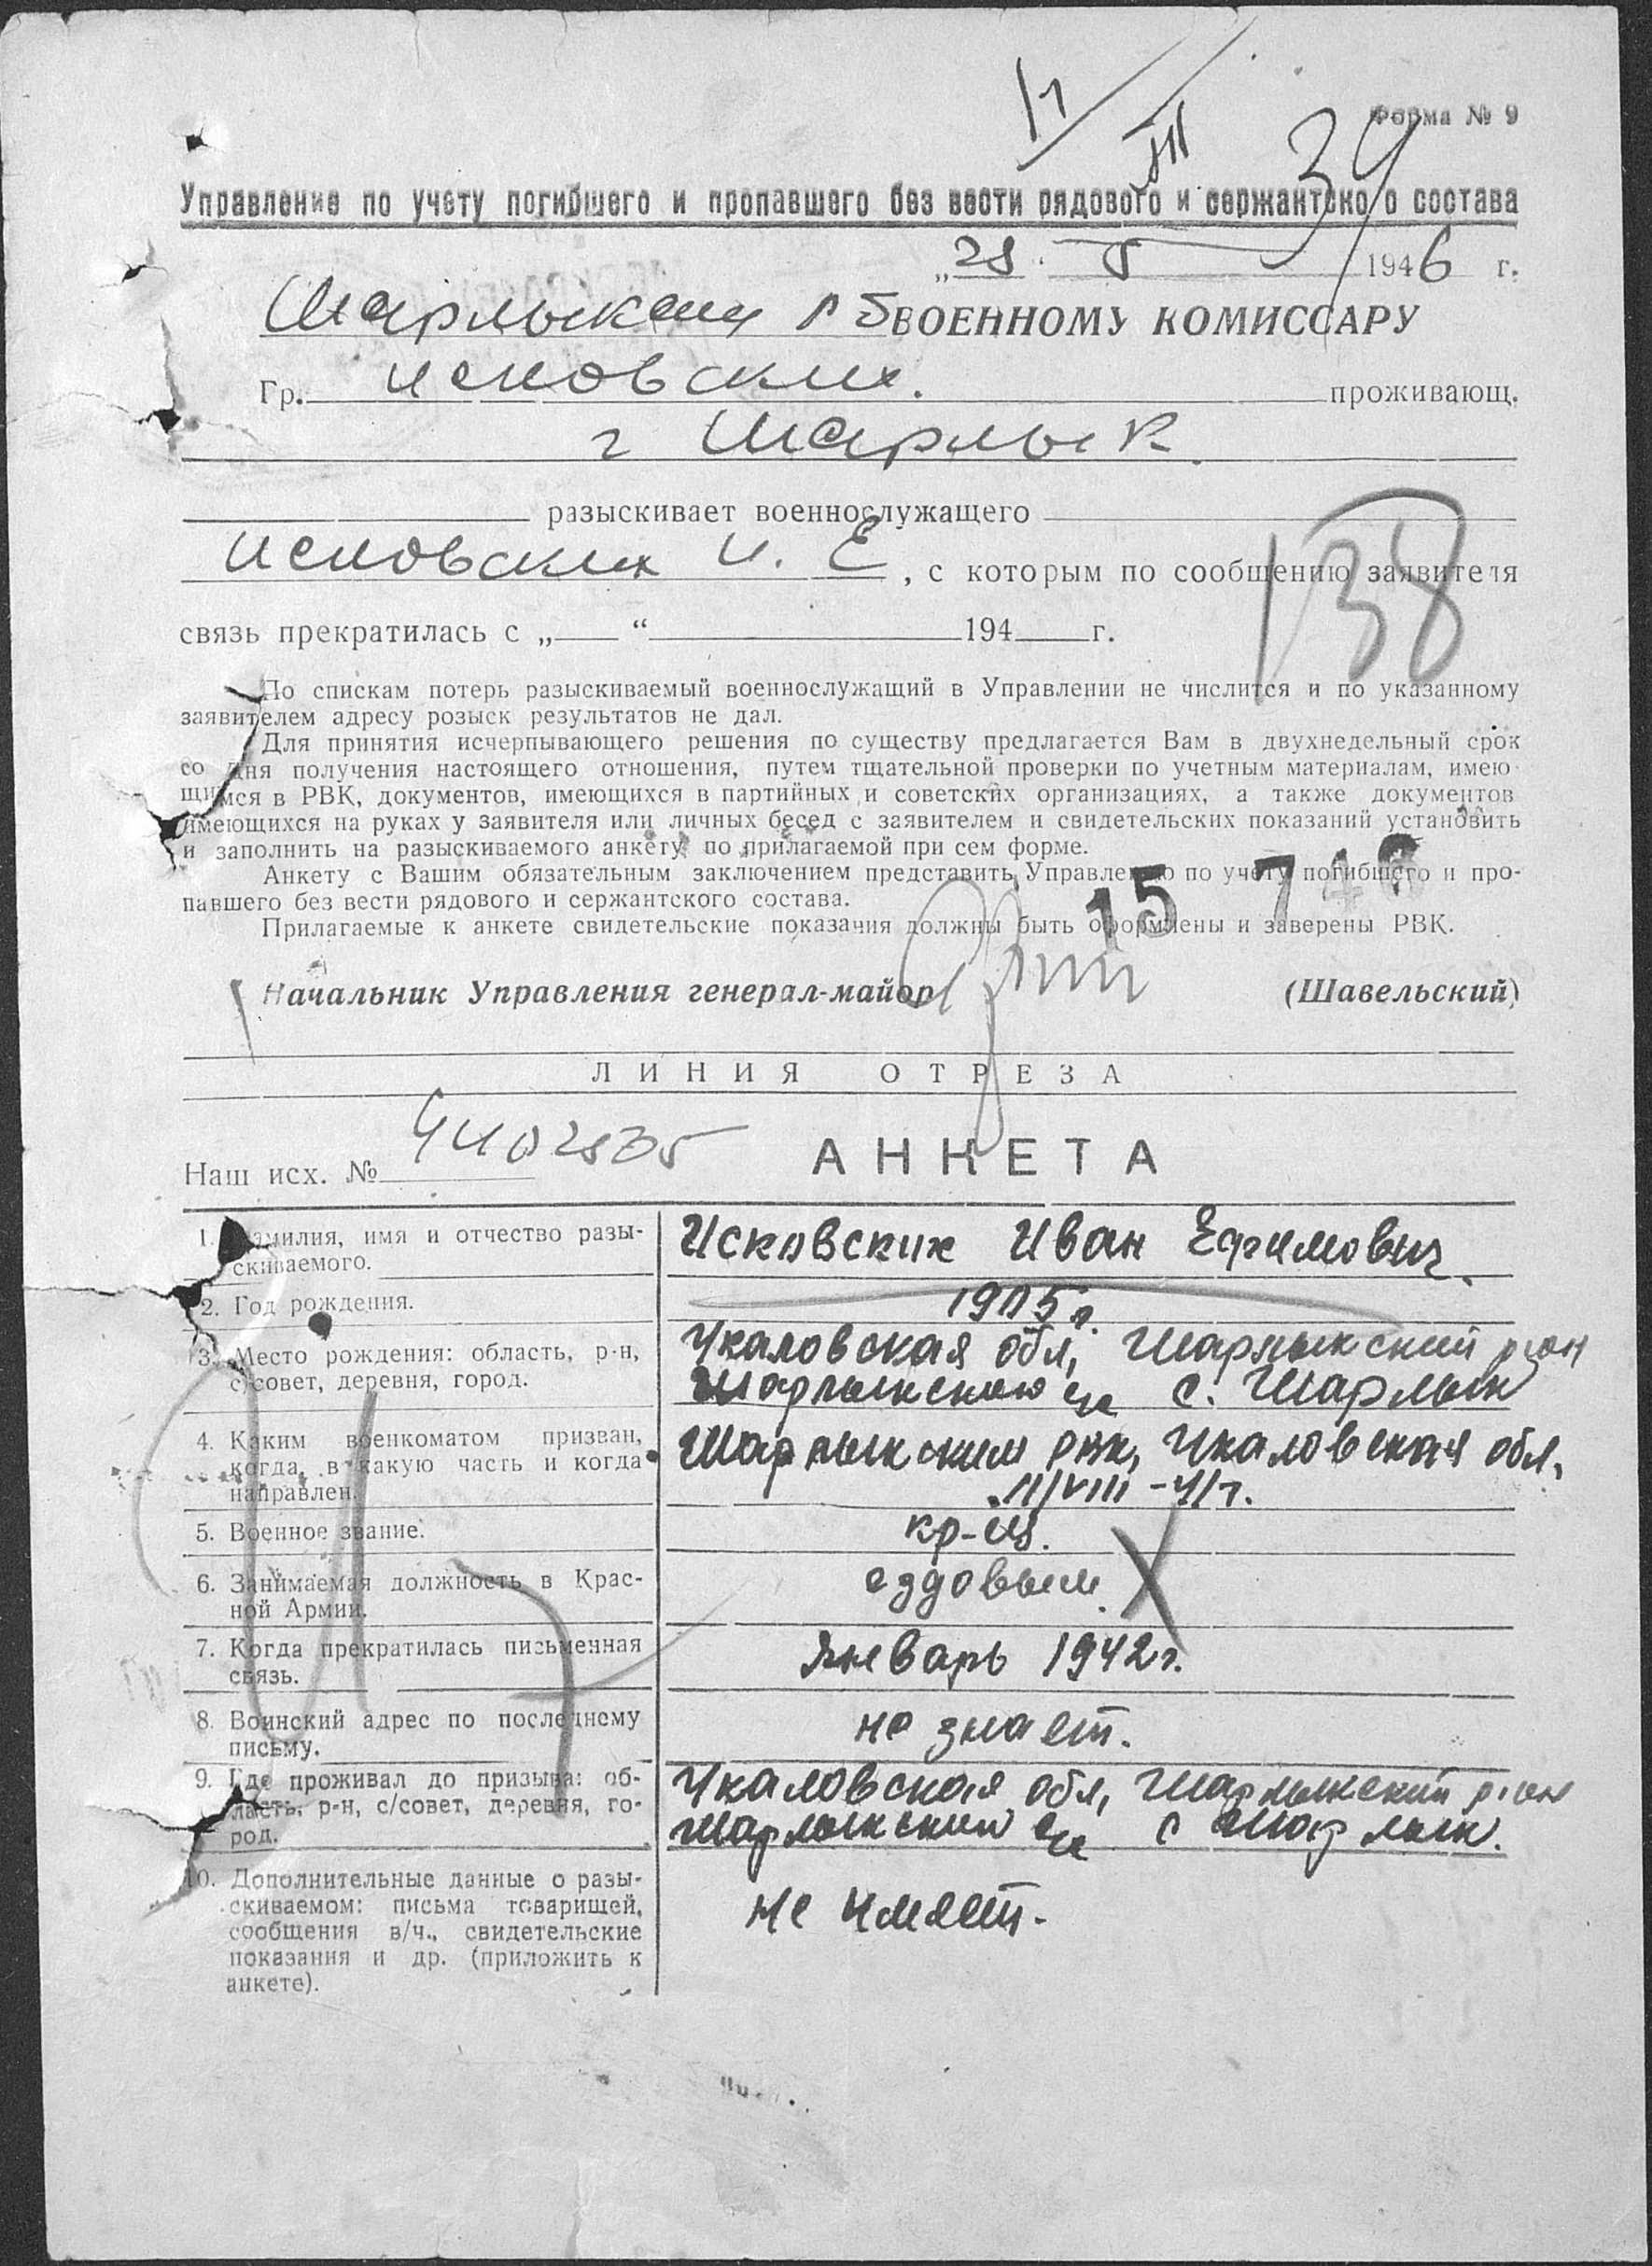 Форма № 9
34
Управление по учету погибшего и пропавшего без вести рядового и сержантского состава
1946 г.
ВОЕННОМУ КОМИССАРУ
Гр. Исковских. проживающ.
г Шарлык.
разыскивает военнослужащего
Исковских И. Е, с которым по сообщению заявителя
138
связь прекратилась с „ “ 194 г.
По спискам потерь разыскиваемый военнослужащий в Управлении не числится и по указанному
заявителем адресу розыск результатов не дал.
Для принятия исчерпывающего решения по существу предлагается Вам в двухнедельный срок
со дня получения настоящего отношения, путем тщательной проверки по учетным материалам, имею-
щимся в РВК, документов, имеющихся в партийных и советских организациях, а также документов
имеющихся на руках у заявителя или личных бесед с заявителем и свидетельских показаний установить
и заполнить на разыскиваемого анкету по прилагаемой при сем форме.
Анкету с Вашим обязательным заключением представить Управлению по учету погибшего и про-
павшего без вести рядового и сержантского состава.
15 7 46
Прилагаемые к анкете свидетельские показания должны быть оформлены и заверены РВК.
Начальник Управления генерал-майор (Шавельский)
ЛИНИЯ ОТРЕЗА
Наш исх. №
АНКЕТА
1. Фамилия, имя и отчество разы-
скиваемого.
Исковских Иван Ефимович.
2. Год рождения.
1905 г.
3. Место рождения: область, р-н,
с/совет, деревня, город.
Чкаловская обл, Шарлыкский р-он
Шарлыкского с/с с. Шарлык
4. Каким военкоматом призван,
когда, в какую часть и когда
направлен.
Шарлыкским рвк, Чкаловская обл,
11/VIII-41г.
5. Военное звание.
кр-ц.
6. Занимаемая должность в Крас-
ной Армии.
ездовым.
7. Когда прекратилась письменная
связь.
Январь 1942г.
8. Воинский адрес по последнему
письму.
не знает.
9. Где проживал до призыва: об-
ласть, р-н, с/совет, деревня, го-
род.
Чкаловская обл, Шарлыкский р-он
Шарлыкский с/с с Шарлык.
10. Дополнительные данные о разы-
скиваемом: письма товарищей,
сообщения в/ч., свидетельские
показания и др. (приложить к
анкете).
не имеет.